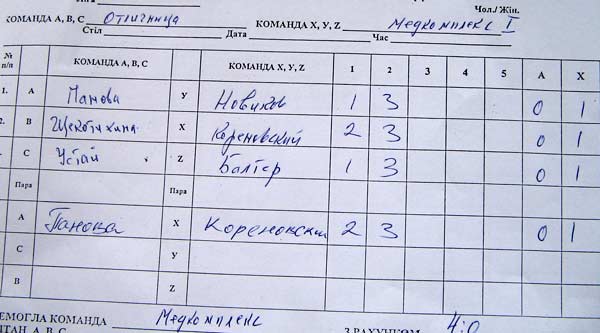 Чол./Жін.
КОМАНДА А, В, С Отличница КОМАНДА Х, У, Z Медкомплекс I
Стіл Дата Час
№ п/п КОМАНДА А, В, С КОМАНДА Х, У, Z 1 2 3 4 5 А Х
1. А Панова У Новиков 1 3 0 1
2. В Щекотихина Х Кореновский 2 3 0 1
С Устай Z Балтер 1 3 0 1
Пара Пара
А Панова Х Кореновский 2 3 0 1
С У
В Z
ЕМОГЛА КОМАНДА Медкомплекс З РАХУНКОМ 4:0
ІТАН А, В, С